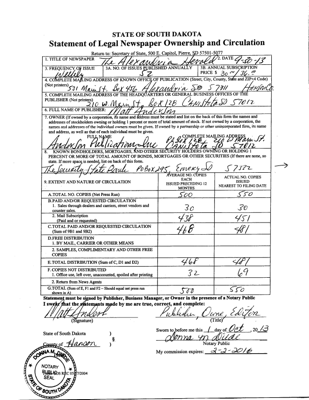 STATE OF SOUTH DAKOTA
Statement of Legal Newspaper Ownership and Circulation
Return to: Secretary of State, 500 E. Capitol, Pierre, SD 57501-5077
1. TITLE OF NEWSPAPER The Alexandria Herald
3. FREQUENCY OF ISSUE Weekly
3A. NO. OF ISSUES PUBLISHED ANNUALLY 52
3B. ANNUAL SUBSCRIPTION PRICE $
4. COMPLETE MAILING ADDRESS OF KNOWN OFFICE OF PUBLICATION (Street, City, County, State and ZIP+4 Code)
(Not printers) 521 Main St. Box 456 Alexandria SD 57311 Hanson
5. COMPLETE MAILING ADDRESS OF THE HEADQUARTERS OF GENERAL BUSINESS OFFICES OF THE
PUBLISHER (Not printer) 210 W. Main St. Box 128 Canistota SD 57012
6. FULL NAME OF PUBLISHER: Matt Anderson
7. OWNER (If owned by a corporation, its name and address must be stated and list on the back of this form the names and
addresses of stockholders owning or holding 1 percent or more of total amount of stock. If not owned by a corporation, the
names and address of the individual owners must be given. If owned by a partnership or other unincorporated firm, its name
and address, as well as that of each individual must be given.
FULL NAME COMPLETE MAILING ADDRESS
Anderson Publications Inc Box 128, Main St. Canistota SD 57012
8. KNOWN BONDHOLDERS, MORTGAGES, AND OTHER SECURITY HOLDERS OWNING OR HOLDING 1
PERCENT OR MORE OF TOTAL AMOUNT OF BONDS, MORTGAGES OR OTHER SECURITIES (If there are none, so
state. If more space is needed, list on back of this form.
The Security State Bank PO Box 195 Emery SD 57332
9. EXTENT AND NATURE OF CIRCULATION
AVERAGE NO. COPIES EACH ISSUED PRECEDING 12 MONTHS
ACTUAL NO. COPIES ISSUED NEAREST TO FILING DATE
A.TOTAL NO. COPIES (Net Press Run) 500 550
B.PAID AND/OR REQUESTED CIRCULATION
1. Sales through dealers and carriers, street vendors and counter sales. 30 30
2. Mail Subscription (Paid and or requested) 438 451
C.TOTAL PAID AND/OR REQUESTED CIRCULATION
(Sum of 9B1 and 9B2) 468 481
D.FREE DISTRIBUTION
1. BY MAIL, CARRIER OR OTHER MEANS
2. SAMPLES, COMPLIMENTARY AND OTHER FREE COPIES
E.TOTAL DISTRIBUTION (Sum of C, D1 and D2) 468 481
F. COPIES NOT DISTRIBUTED
1. Office use, left over, unaccounted, spoiled after printing 32 69
2. Return from News Agents
G.TOTAL (Sum of E, F1 and F2 - Should equal net press run shown in A) 500 550
Statement must be signed by Publisher, Business Manager, or Owner in the presence of a Notary Public
I swear that the statements made by me are true, correct, and complete:
Matt Anderson Publisher, Owner, Editor
(Signature) (Title)
State of South Dakota )
County of Hanson )
§
Sworn to before me this 1 day of Oct, 20 13
Donna M
Notary Public
My commission expires: 2-2-2016
DONNA M.
NOTARY PUBLIC
SEAL
STATE OF SOUTH DAKOTA